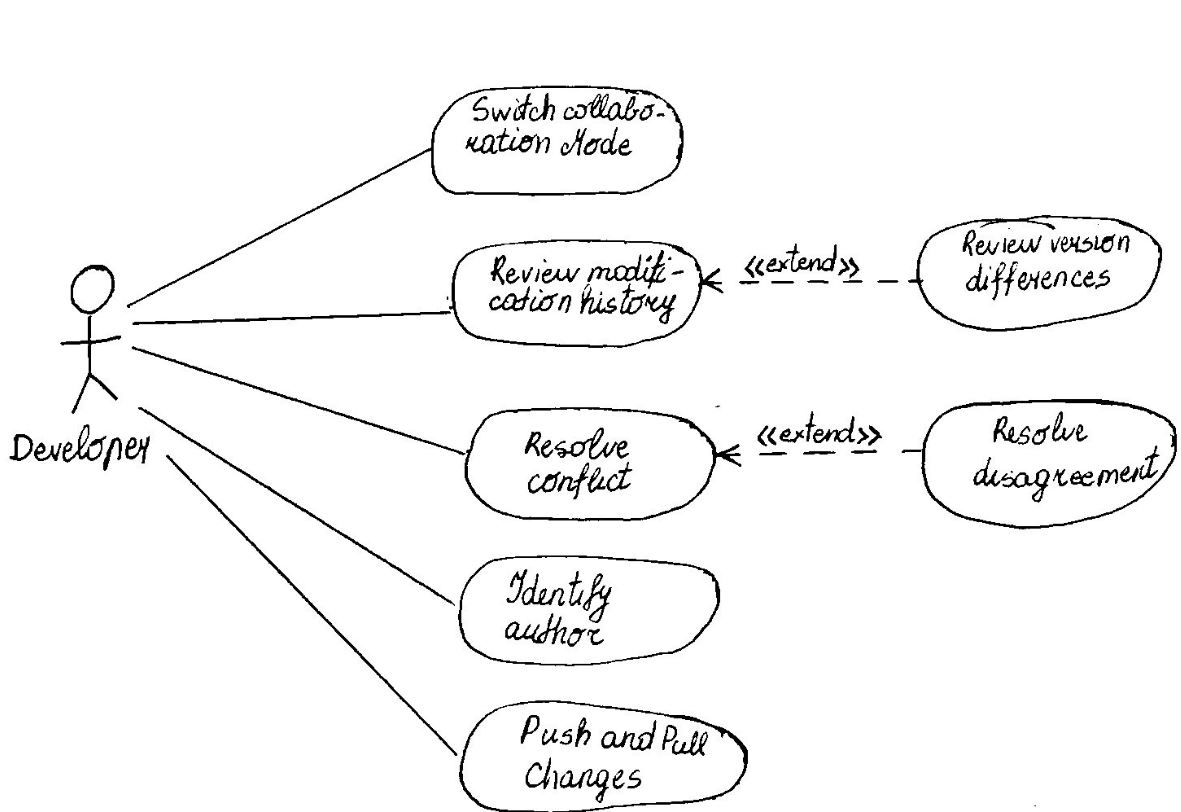 Switch collabo-
ration Mode
Review modifi-
cation history
<<extend>>
Review version
differences
Developer
Resolve
conflict
<<extend>>
Resolve
disagreement
Identify
author
Push and Pull
Changes